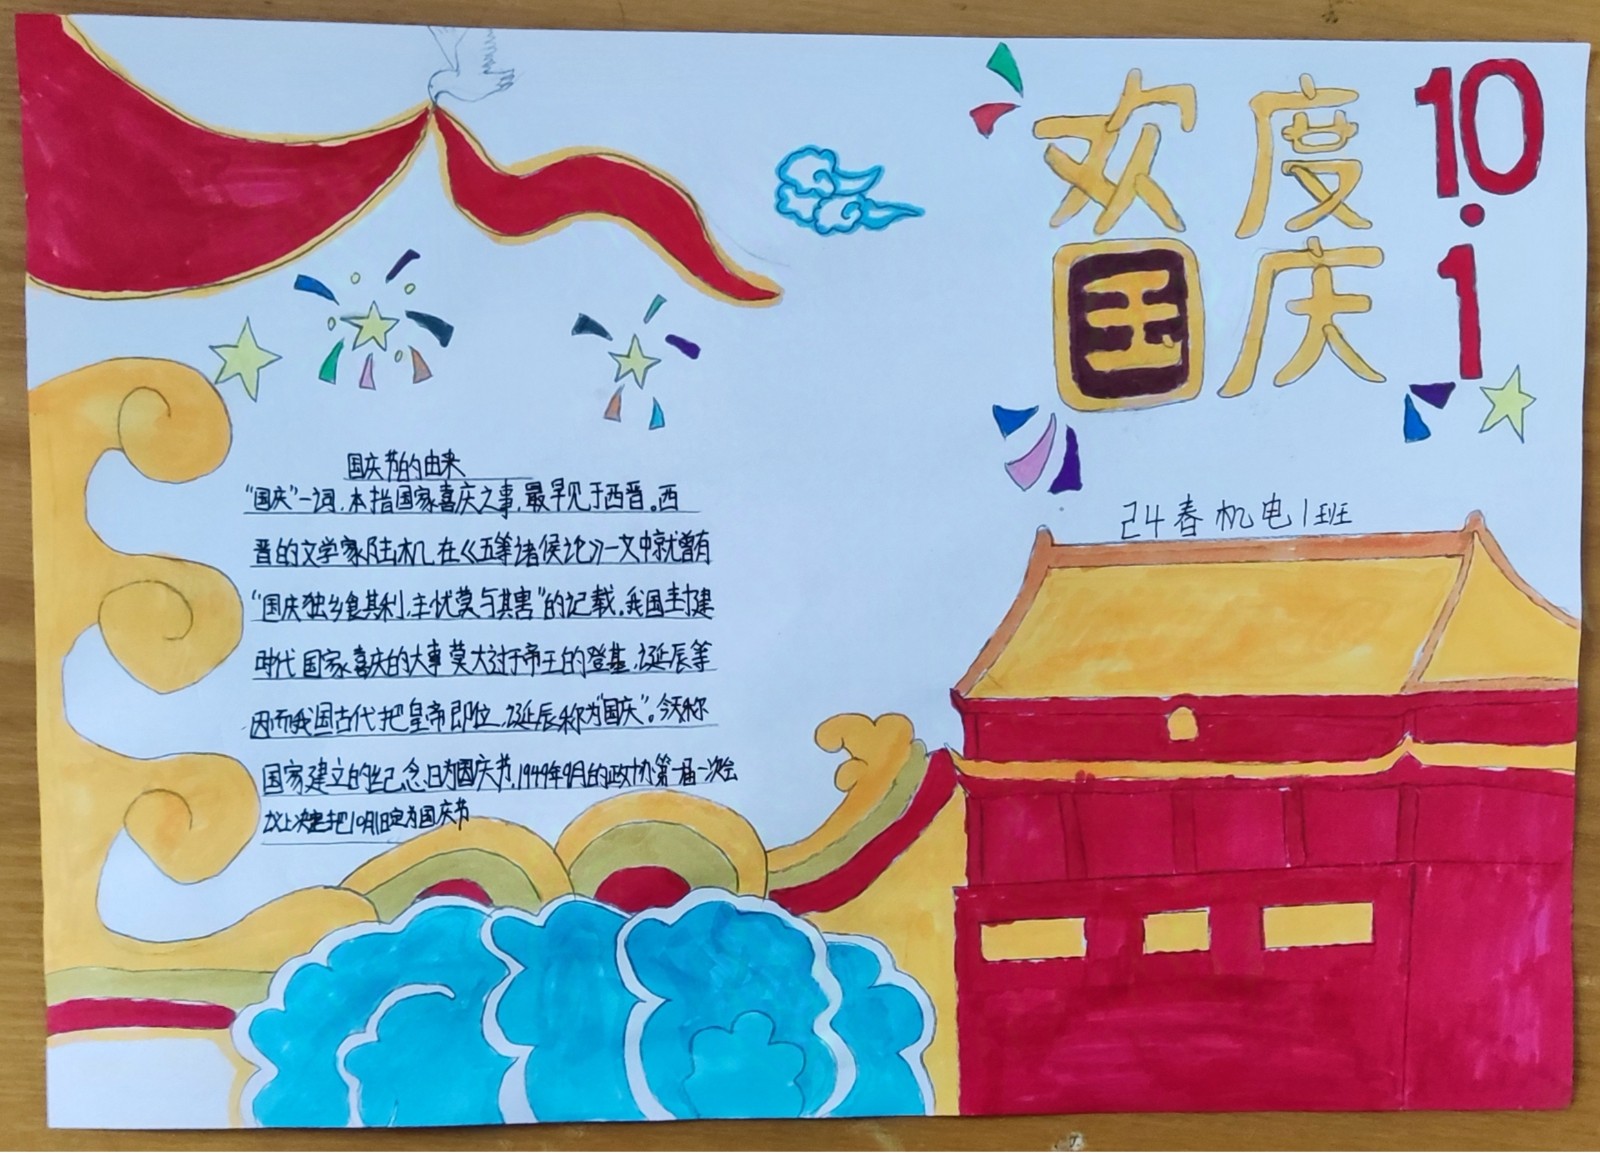 欢度
国庆
10.1
24春机电1班
国庆节的由来
“国庆”一词,本指国家喜庆之事,最早见于西晋。西
晋的文学家陆机,在《五等诸侯论》一文中就曾有
“国庆独乡食其利,主忧莫与其害”的记载,我国封建
时代国家喜庆的大事莫大过于帝王的登基,诞辰等
因而我国古代把皇帝即位,诞辰称为“国庆”。今天称
国家建立的纪念日为国庆节,1949年9月的政协第一届一次会
议上决定把10月1日定为国庆节